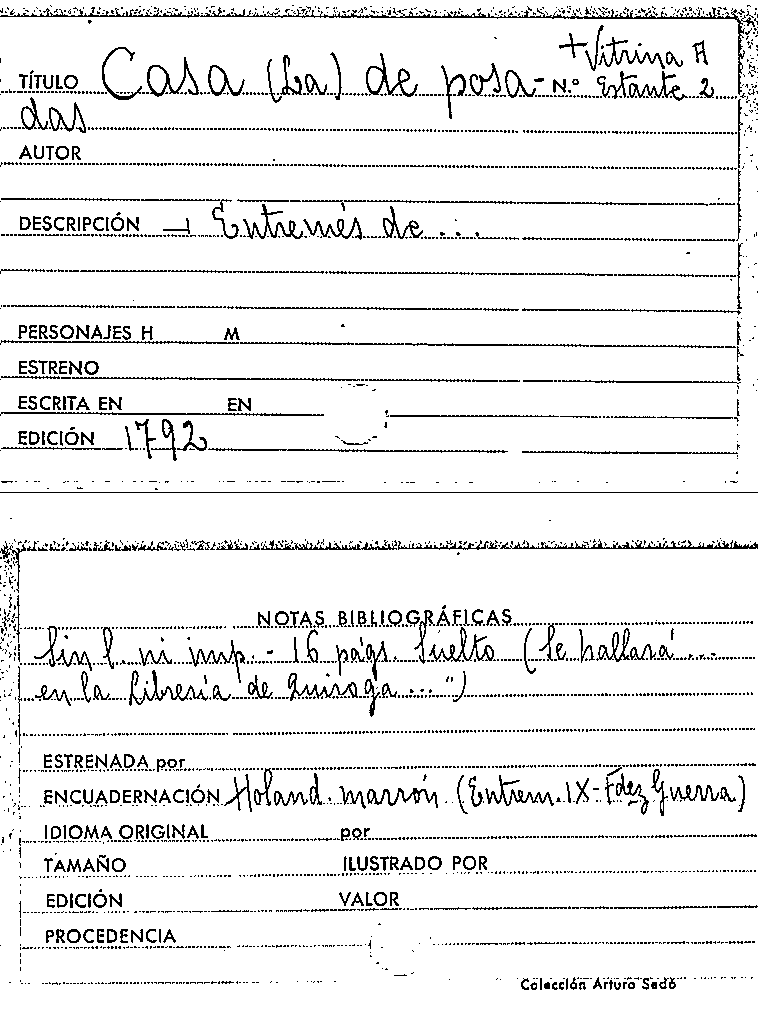 + Vitrina A
TÍTULO Casa (La) de posa- N.º Estante 2
das
AUTOR
DESCRIPCIÓN — Entremés de ...
PERSONAJES H M
ESTRENO
ESCRITA EN EN
EDICIÓN 1792
NOTAS BIBLIOGRÁFICAS
Sin l. ni imp. - 16 págs. Suelto (Se hallará ...
en la Librería de Quiroga ...")
ESTRENADA por
ENCUADERNACIÓN Holand. marrón (Entrem. IX - Fdez Guerra)
IDIOMA ORIGINAL por
TAMAÑO ILUSTRADO POR
EDICIÓN VALOR
PROCEDENCIA
Colección Arturo Sedó